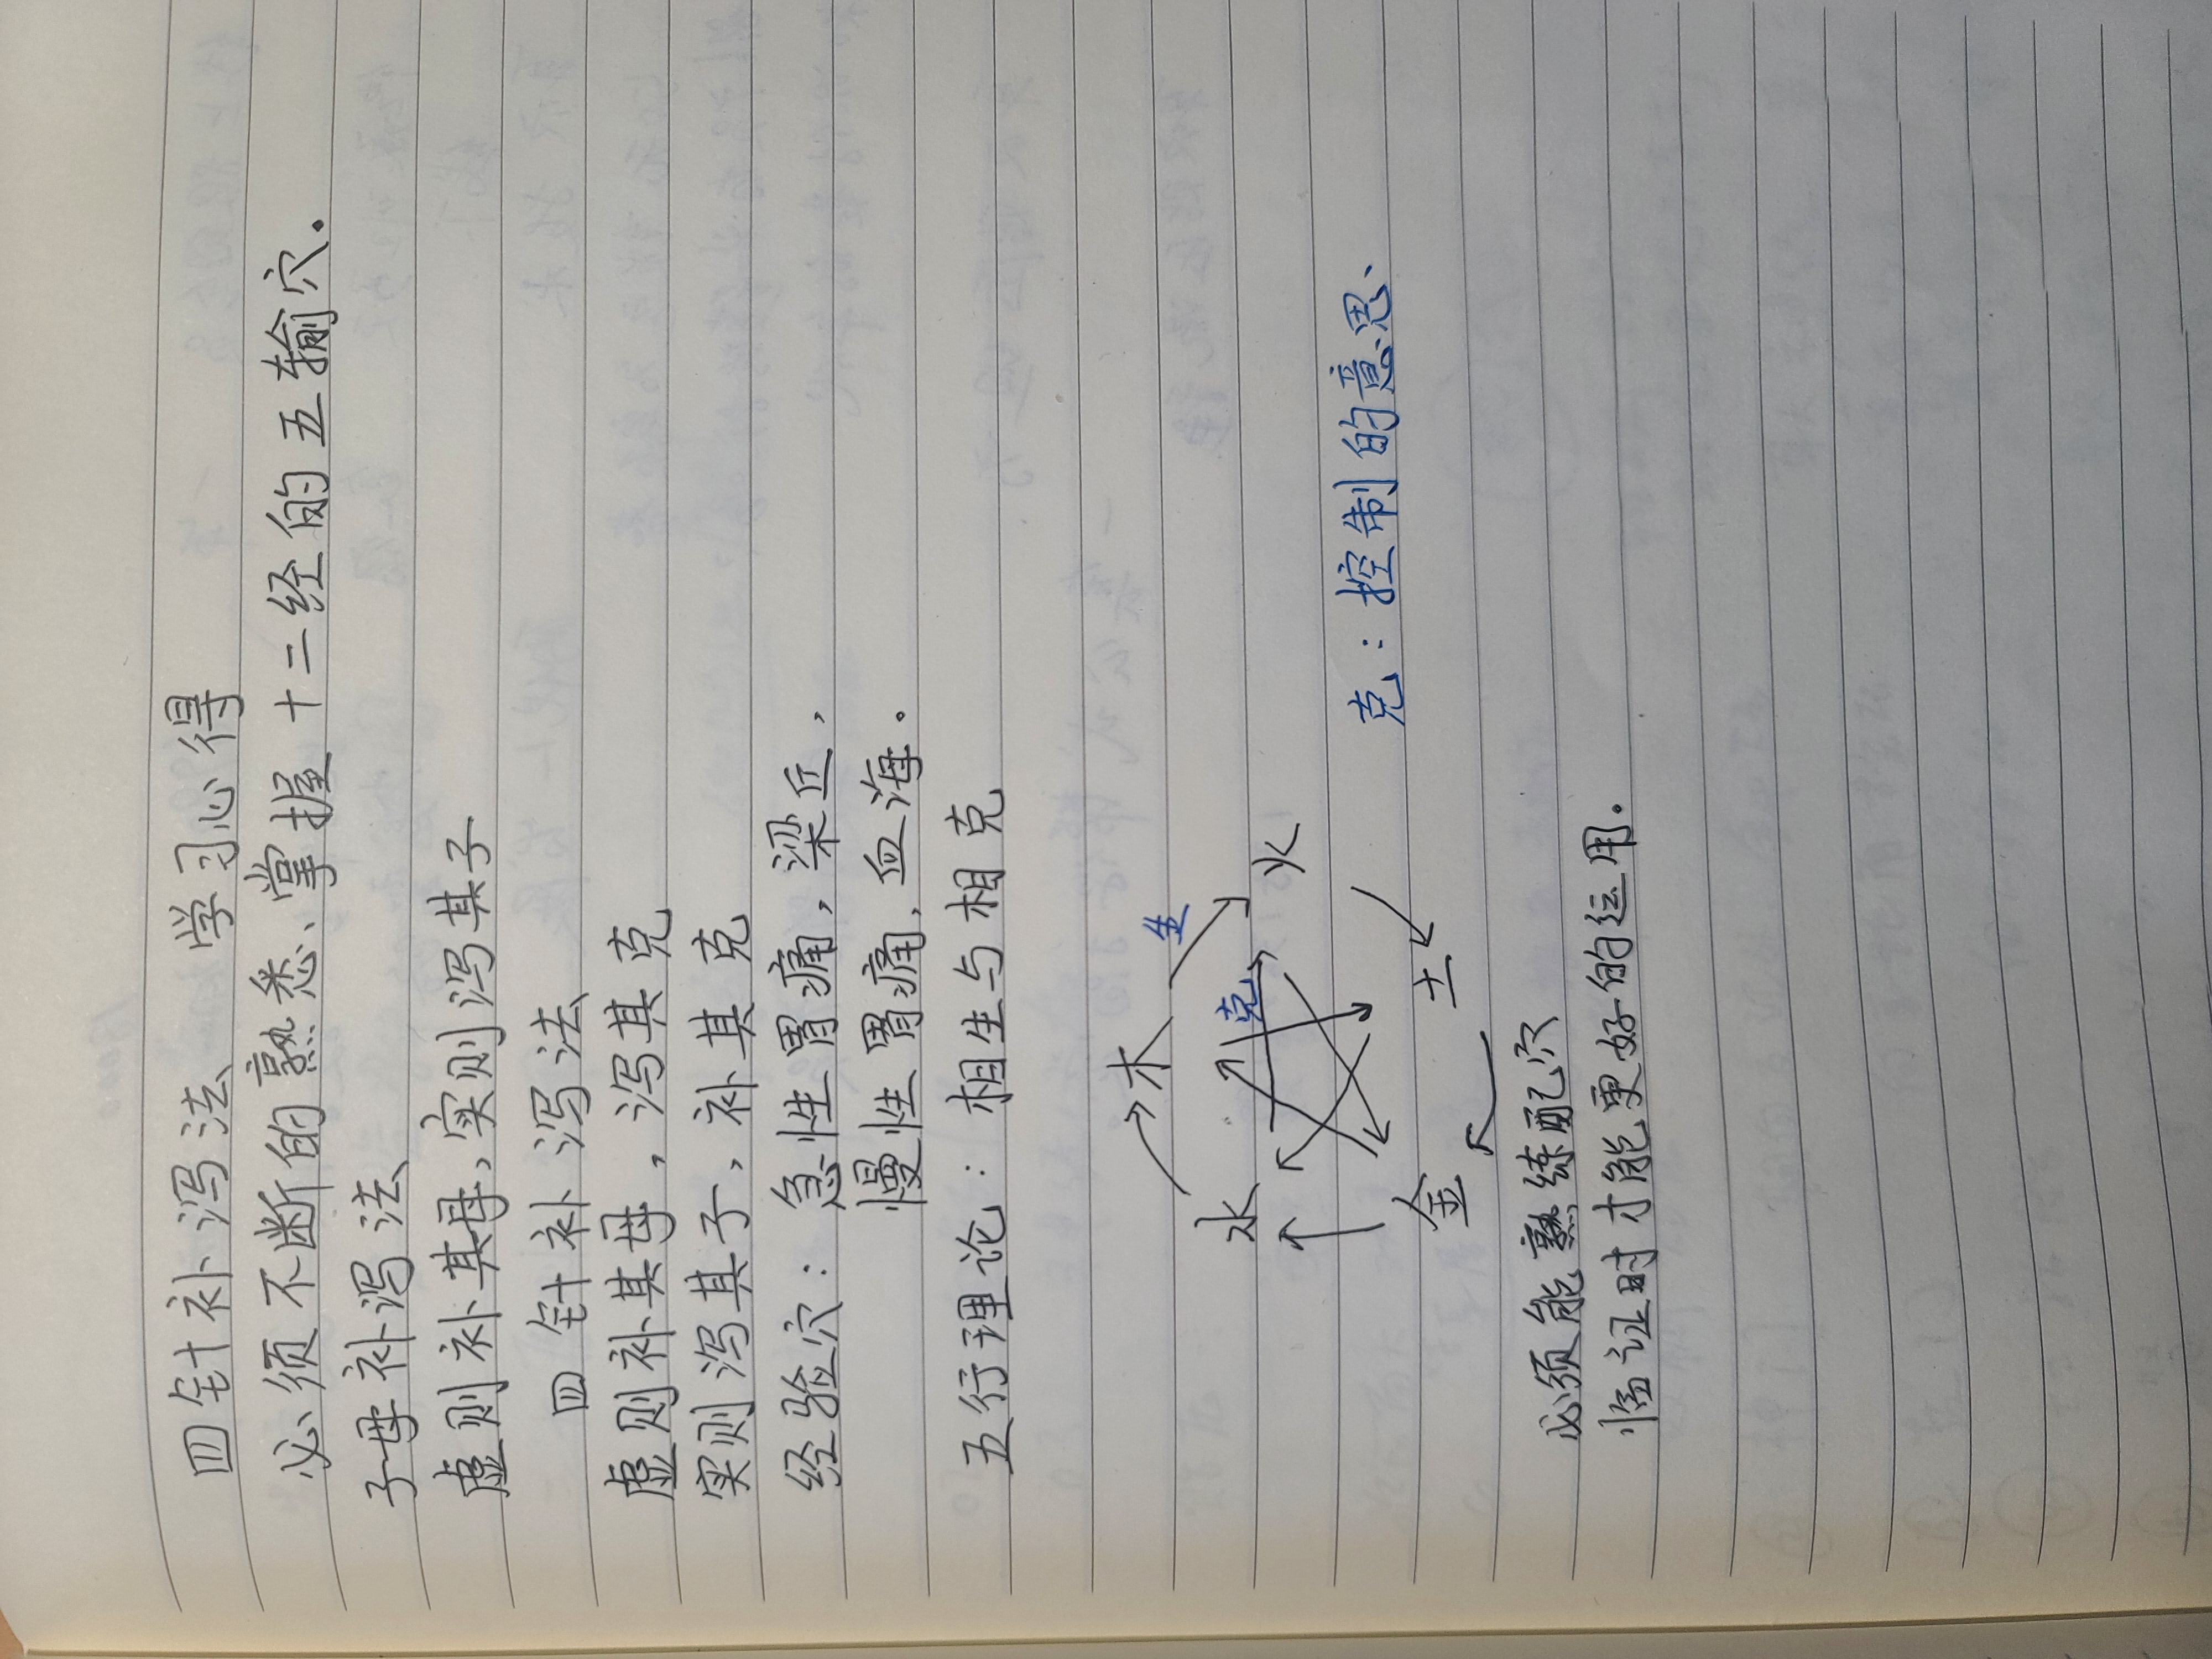 四针补泻法 学习心得
必须不断的熟悉、掌握十二经的五输穴.
子母补泻法
虚则补其母,实则泻其子
四针补泻法
虚则补其母,泻其克
实则泻其子,补其克
经验穴:急性胃痛,梁丘,
慢性胃痛,血海.
五行理论:相生与相克
木
生
火
水
克
克:控制的意思、
土
金
必须能熟练配穴
临证时才能更好的运用.